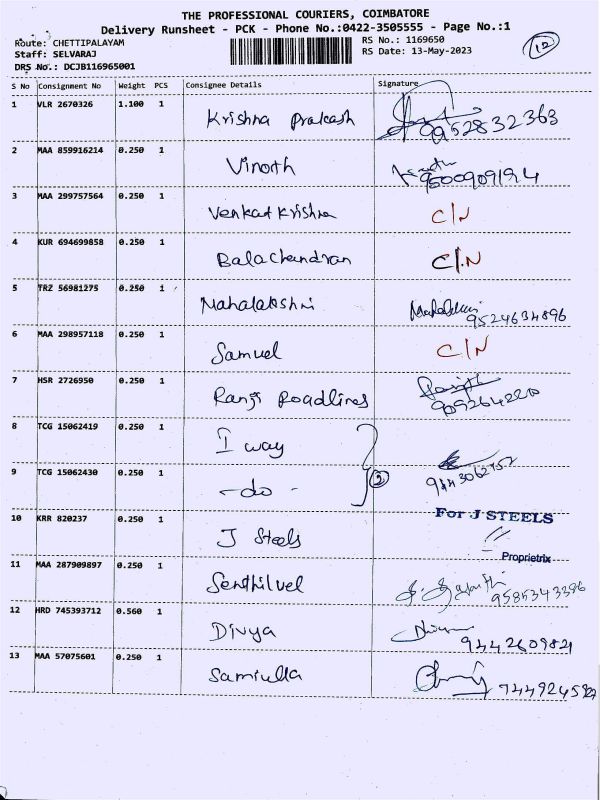 THE PROFESSIONAL COURIERS, COIMBATORE
Delivery Runsheet - PCK - Phone No.:0422-3505555 - Page No.:1
Route: CHETTIPALAYAM RS No.: 1169650
Staff: SELVARAJ RS Date: 13-May-2023
DRS No.: DCJB116965001
12
S No Consignment No Weight PCS Consignee Details Signature
1 VLR 2670326 1.100 1 Krishna prakash 9952832363
2 MAA 859916214 0.250 1 Vinoth
3 MAA 299757564 0.250 1 Venkat Krishna C/N
4 KUR 694699858 0.250 1 Balachandran C/N
5 TRZ 56981275 0.250 1 Mahalakshmi 9524634896
6 MAA 298957118 0.250 1 Samuel C/N
7 HSR 2726950 0.250 1 Ranji Roadlines
8 TCG 15062419 0.250 1 I way
9 TCG 15062430 0.250 1 -do- 2
10 KRR 820237 0.250 1 J Steels For J STEELS
Proprietrix
11 MAA 287909897 0.250 1 Senthilvel 9585343386
12 HRD 745393712 0.560 1 Divya 9442609821
13 MAA 57075601 0.250 1 Samiulla